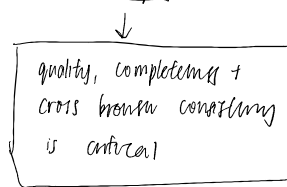 quality, completeness +
cross browser consistency
is critical